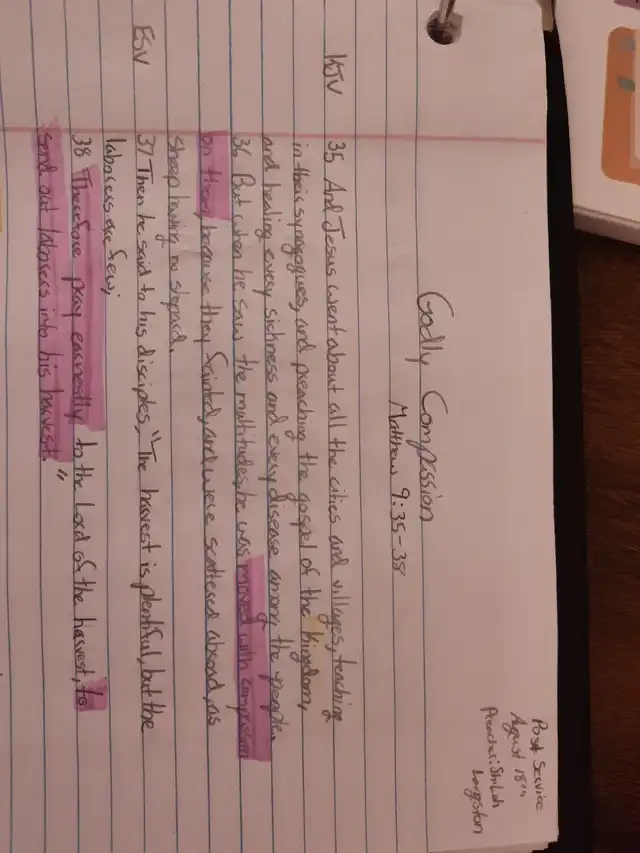 Past Service
August 18th
Preacher: Shiloh
Langston
Godly Compassion
Matthew 9:35-38
KJV 35 And Jesus went about all the cities and villages, teaching
in their synagogues, and preaching the gospel of the kingdom,
and healing every sickness and every disease among the people.
36 But when he saw the multitudes, he was moved with compassion
on them, because they fainted, and were scattered abroad, as
sheep having no shepard.
ESV 37 Then he said to his disciples, "The harvest is plentiful, but the
laborers are few;
38 Therefore pray earnestly to the Lord of the harvest, to
send out laborers into his harvest."